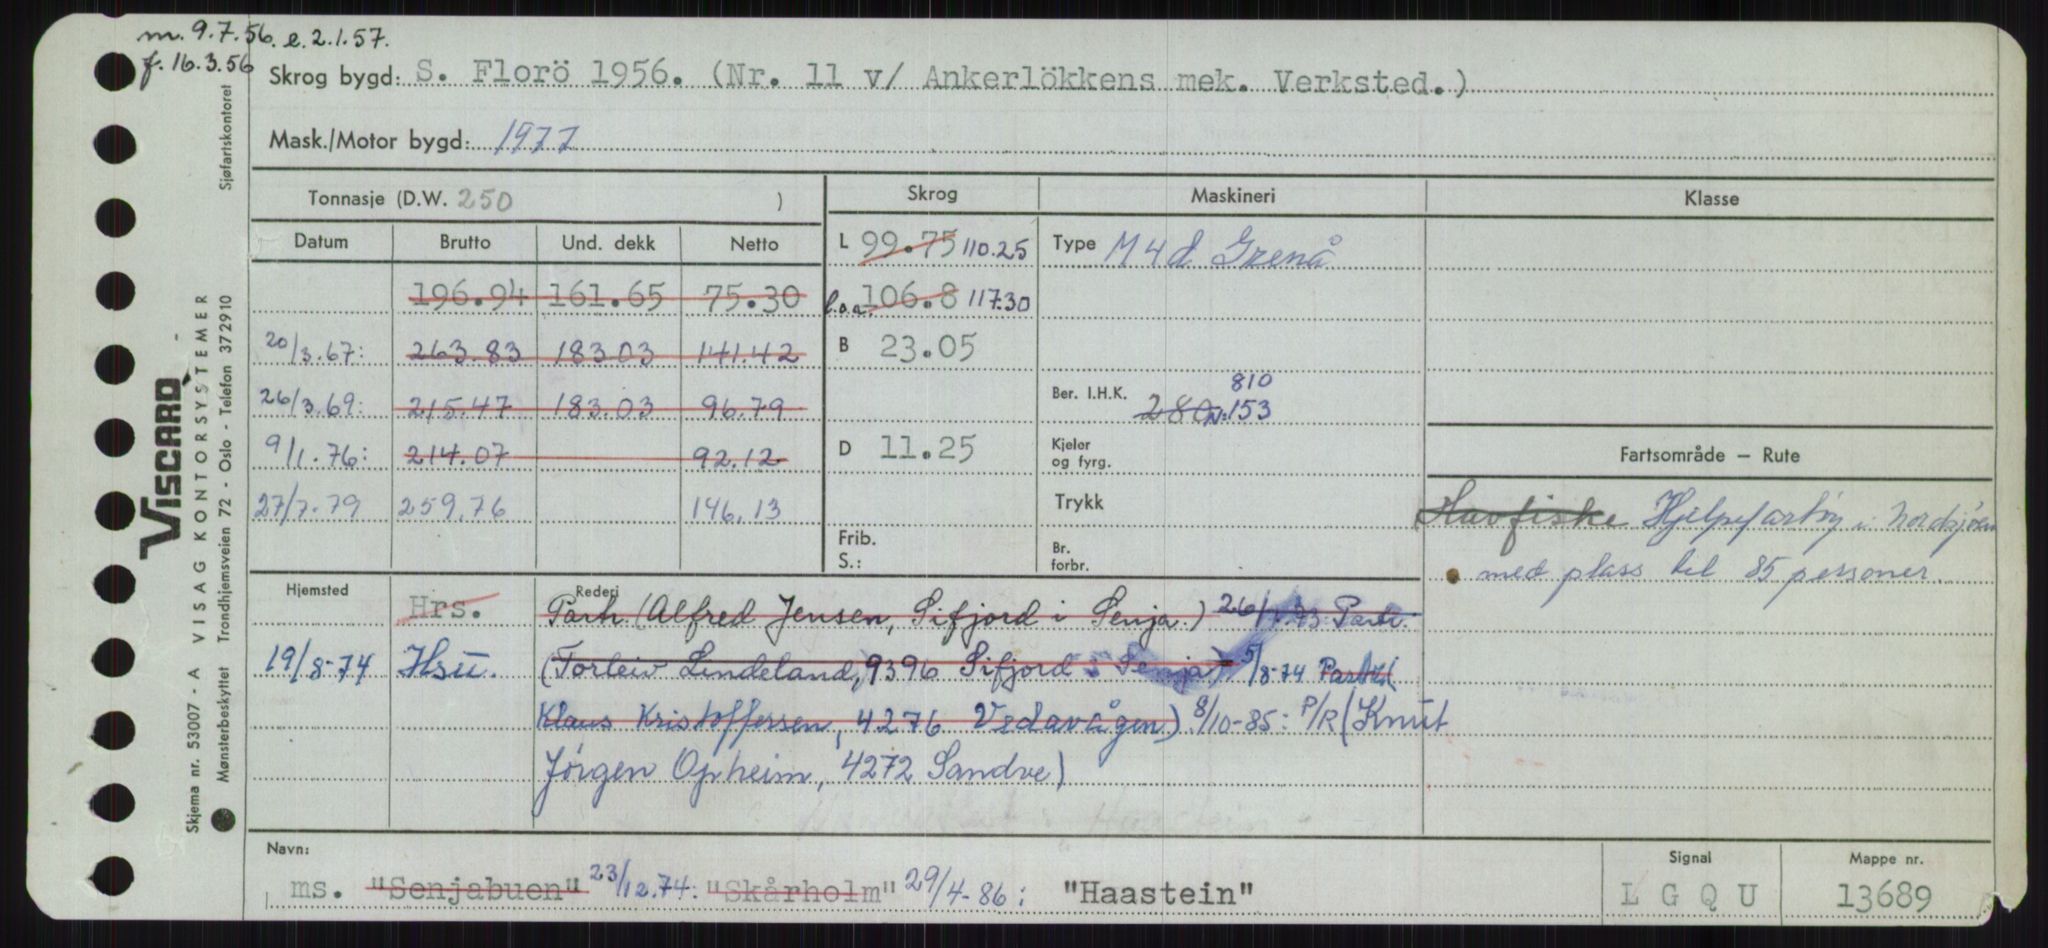 m. 9.7.56. e. 2.1.57.
f. 16.3.56
Skrog bygd: S. Florö 1956. (Nr. 11 v/ Ankerlökkens mek. Verksted.)
Mask./Motor bygd: 1977
Tonnasje (D.W. 250 )
Skrog
Maskineri
Klasse
Datum Brutto Und. dekk Netto
L 99.75 110.25
Type M4d Grenå
196.94 161.65 75.30
l.o.a. 106.8 117.30
20/3.67: 263.83 183.03 141.42
B 23.05
26/3.69: 215.47 183.03 96.79
Ber. I.H.K. 280 N: 153
810
9/1.76: 214.07 92.12
D 11.25
Kjeler
og fyrg.
Fartsområde – Rute
27/7.79 259.76 146.13
Trykk
Havfiske Hjelpefartøy i Nordsjøen
med plass til 85 personer.
Frib.
S.:
Br.
forbr.
Hjemsted
Rederi
Hrs. Partr. (Alfred Jensen, Sifjord i Senja.) 26/1.73: Partr.
19/8-74 Hsu. (Torleiv Lindeland, 9396 Sifjord i Senja) 5/8-74 Partr. (
Klaus Kristoffersen, 4276 Vedavågen) 8/10-85: P/R (Knut
Jörgen Opheim, 4272 Sandve)
Navn:
Signal
Mappe nr.
ms. "Senjabuen" 23/12.74: "Skårholm" 29/4-86: "Haastein"
L G Q U
13689
VISCARD
Skjema nr. 53007 - A VISAG KONTORSYSTEMER
Mønsterbeskyttet Trondhjemsveien 72 - Oslo - Telefon 37 29 10
Sjøfartskontoret